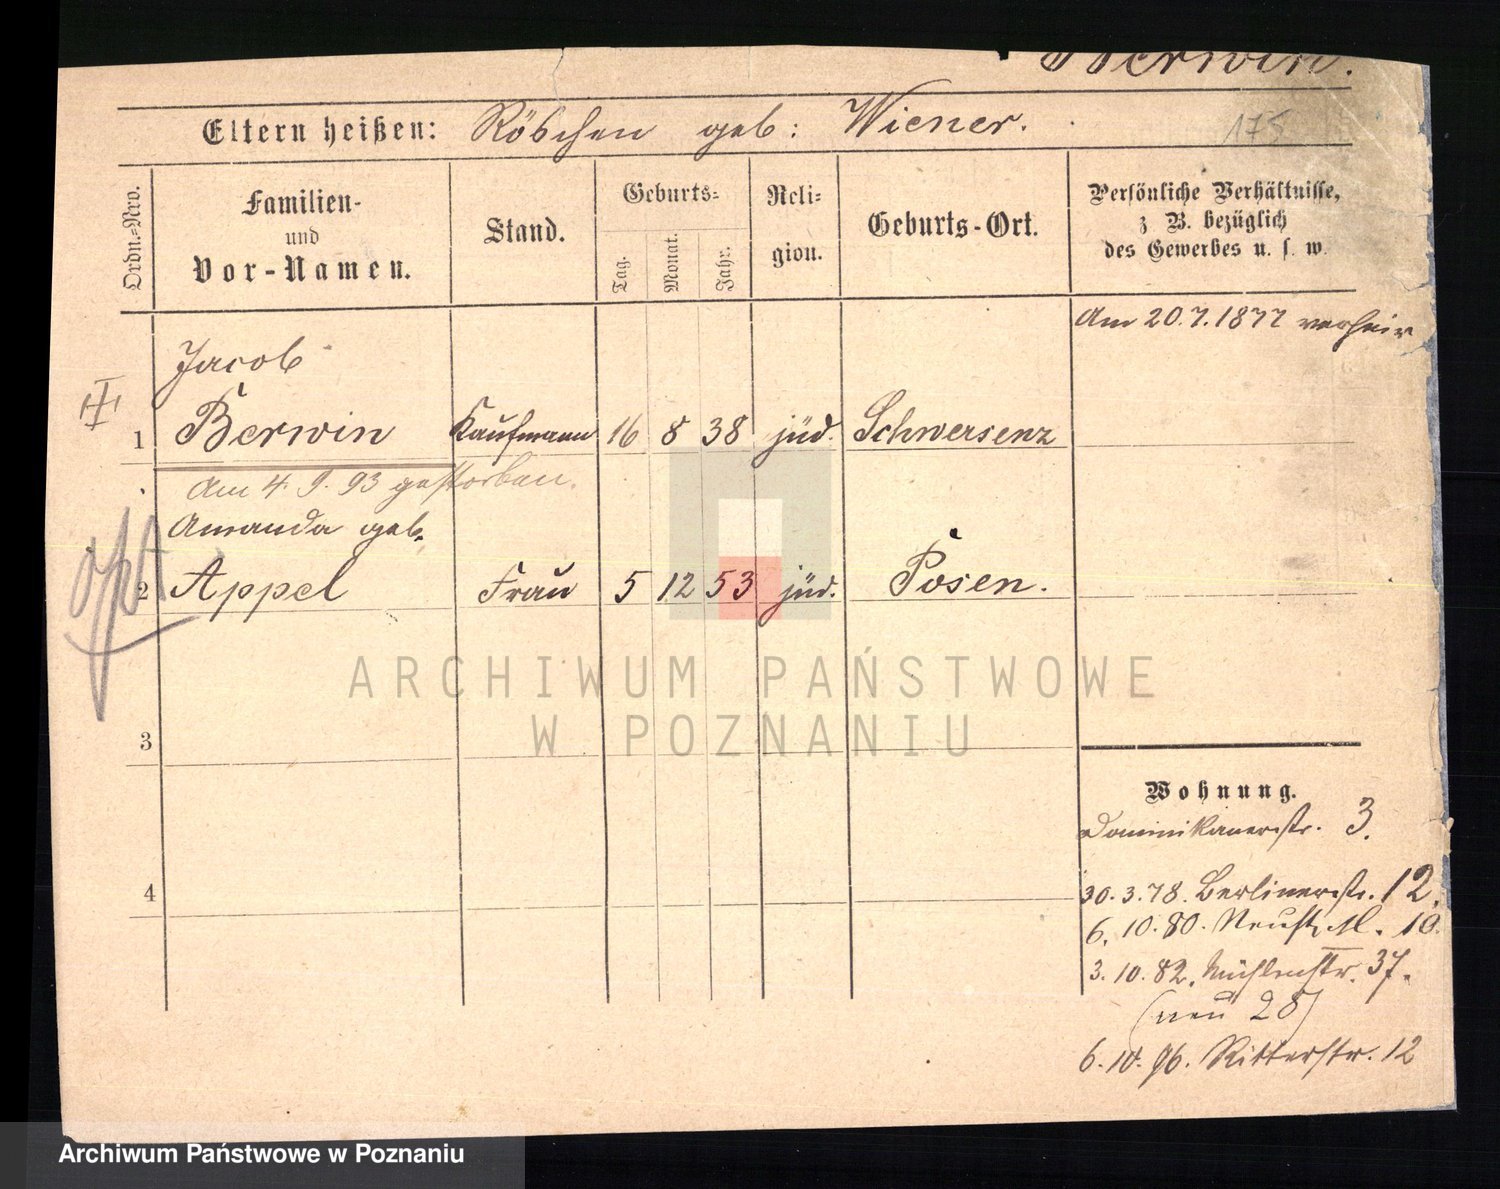 Berwin.
Eltern heißen: Röschen geb: Wiener.
175
Ordn.-Nro.
Familien-
und
Vor-Namen.
Stand.
Geburts-
Tag.
Monat.
Jahr.
Reli-
gion.
Geburts-Ort.
Persönliche Verhältnisse,
z B. bezüglich
des Gewerbes u. s. w.
Am 20.7.1877 verheir
Jacob
1 Berwin Kaufmann 16 8 38 jüd. Schwersenz
Am 4. 9. 93 gestorben.
Amanda geb.
2 Appel Frau 5 12 53 jüd. Posen.
ARCHIWUM PAŃSTWOWE
W POZNANIU
3
Wohnung.
Dominikanerstr. 3.
4
30.3.78. Berlinerstr. 12.
6. 10. 80. Neust. M. 10.
3. 10. 82. Mühlenstr. 37.
(neu 28)
6. 10. 96. Ritterstr. 12
Archiwum Państwowe w Poznaniu